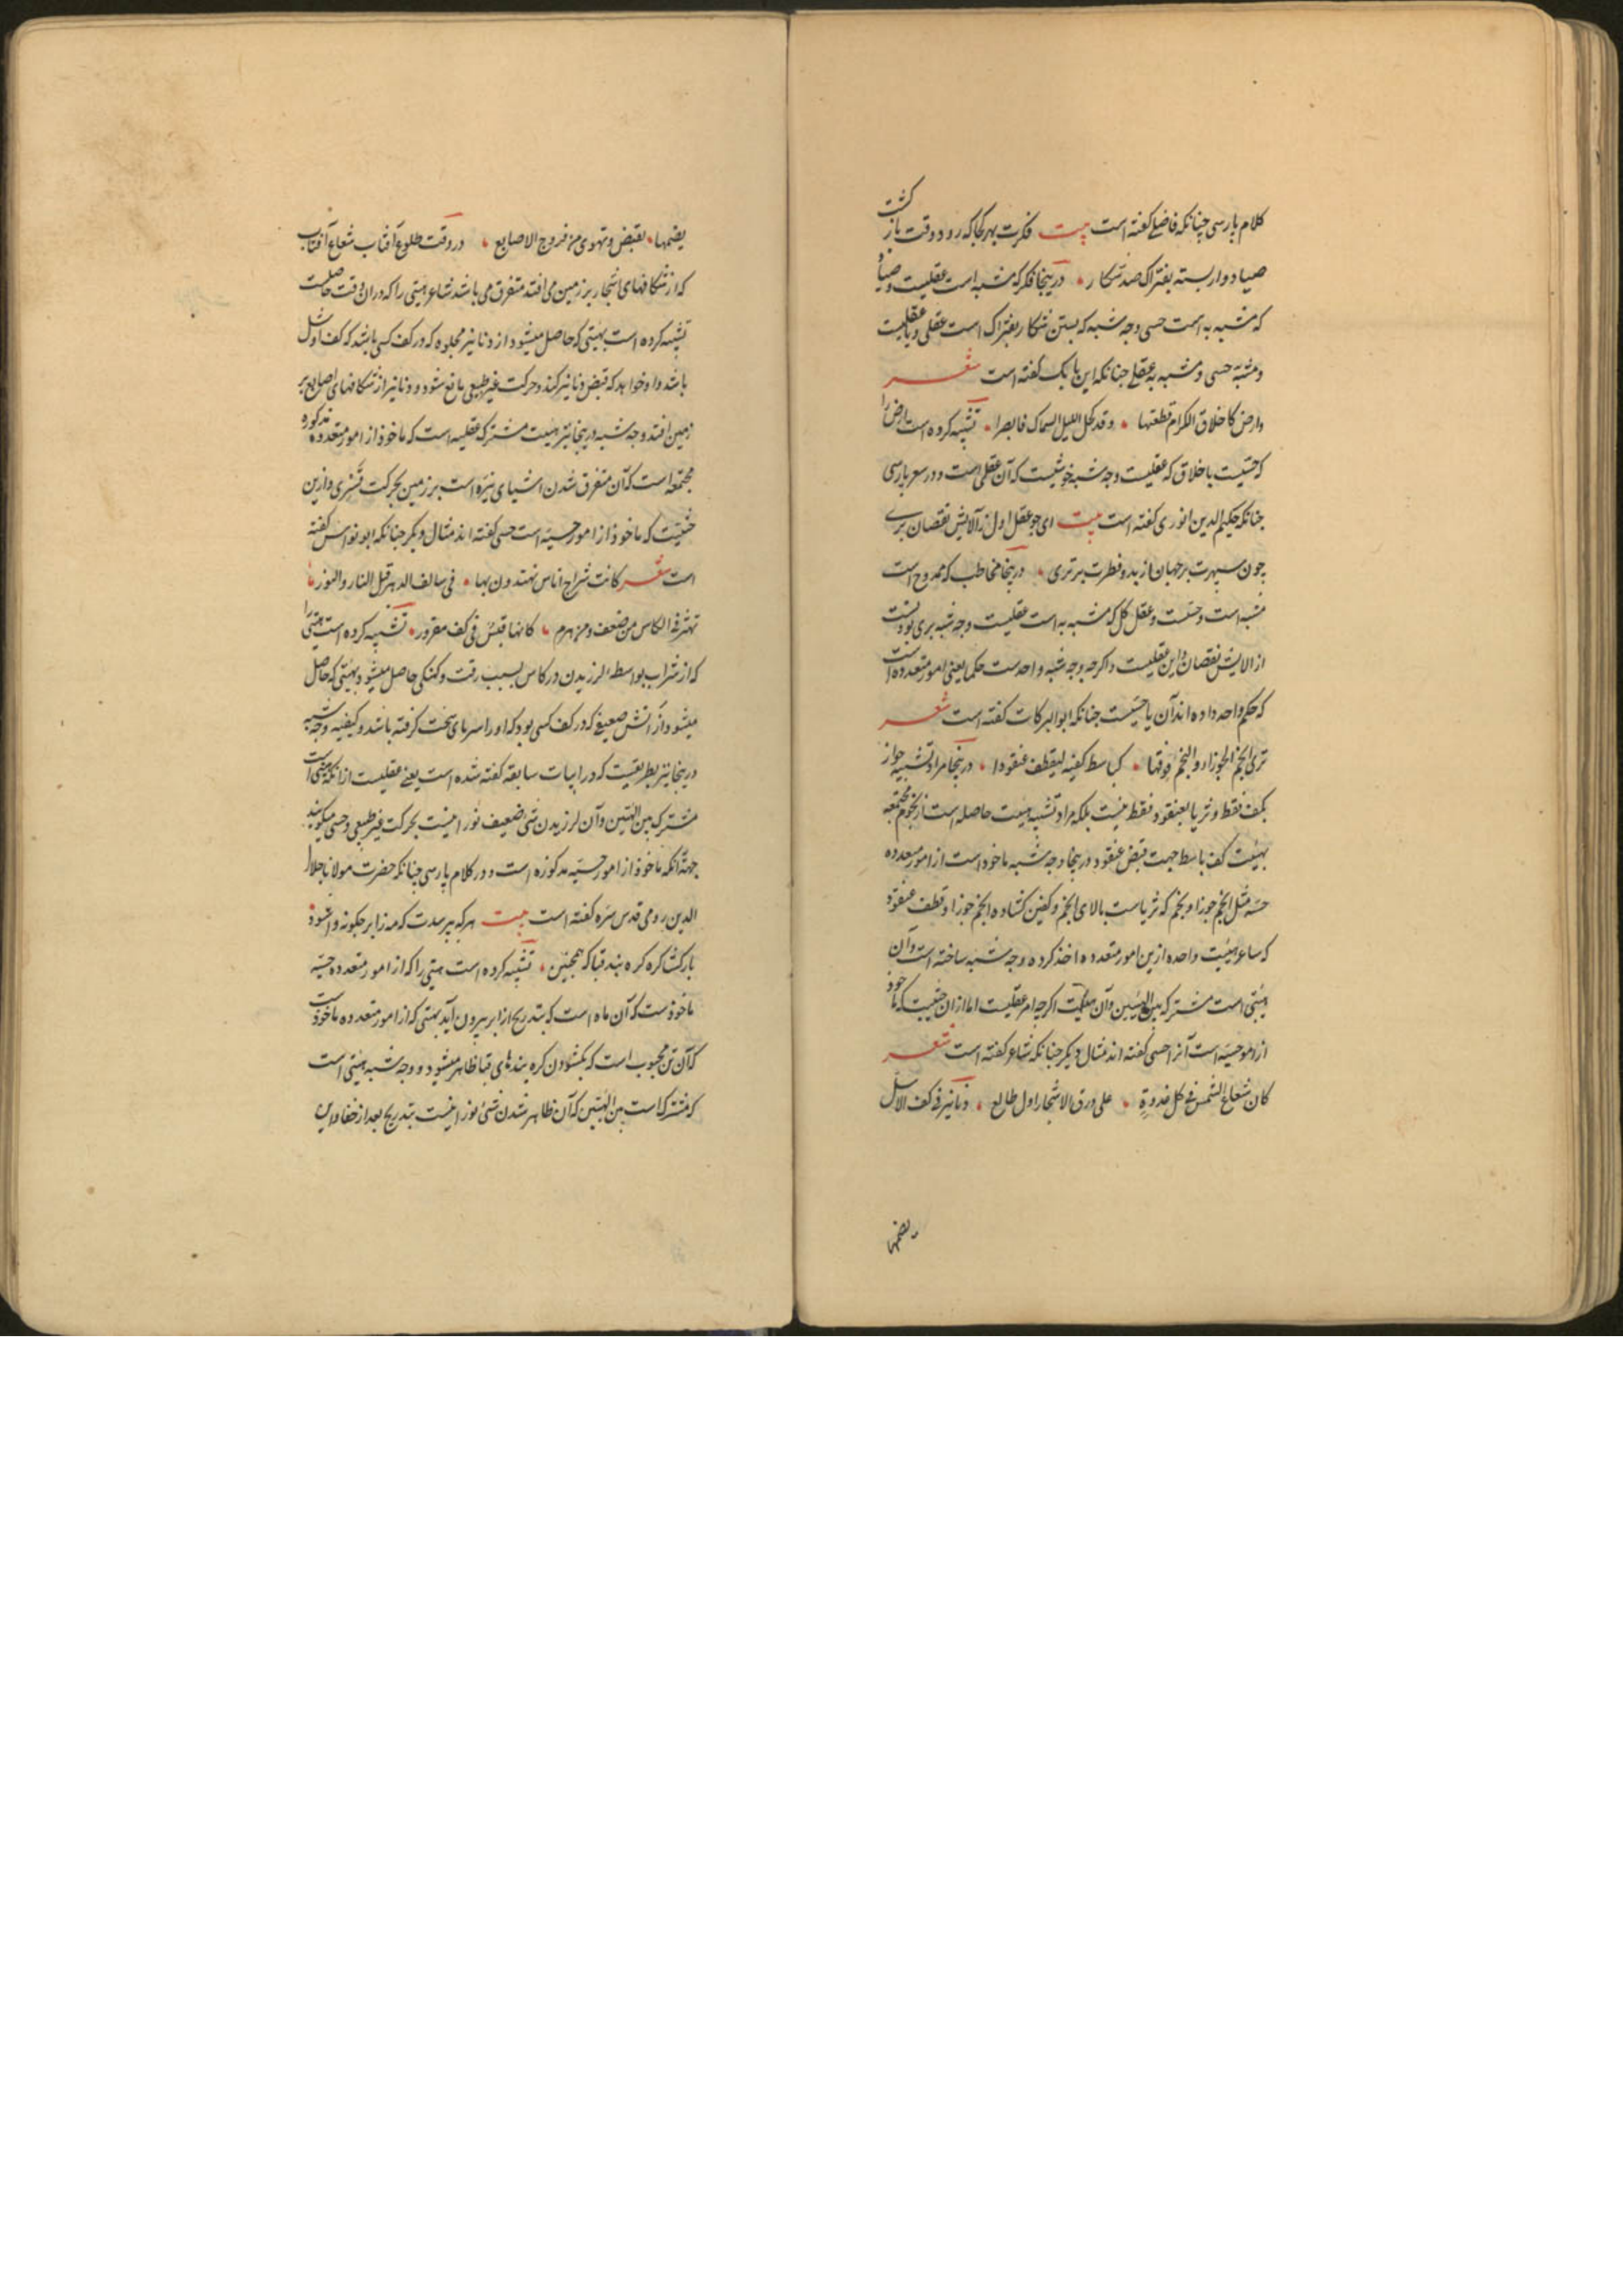 کلام پارسی چنانکه فاضلی کفته است بیت فکرت بهر کجا که رود وقت باز کشت
صیاد وار بسته بفتراک صد شکار در ینجا فکر که مشبه است عقلیست و صیاد
که مشبه به است حسی وجه شبه که بستن شکار بفتراک است عقلی و یا عقلیست
و مشبه حسی و مشبه به عقلی چنانکه این بابک کفته است شعر
وارض کاخلاق الکرام قطعتها وقد کحل اللیل السماک فابصرا تشبیه کرده است ارض را
که حسیست باخلاق که عقلیست وجه شبه خوشیست که آن عقلی است و در شعر پارسی
چنانکه حکیم الدین انوری کفته است بیت ای چو عقل اول از آلایش نقصان بری
چون سپهرت بر جهان از بدو فطرت برتری در ینجا مخاطب که ممدوح است
مشبه است و حسیست و عقل کل که مشبه به است عقلیست وجه شبه بری بودنست
از الایش نقصان و این عقلیست و اکرچه وجه شبه واحدست حکما یعنی امور متعدده است
که حکم واحد داده اند آن یا حسیست چنانکه ابوالبرکات کفته است شعر
تری انجم الجوزاء والنجم فوقها کباسط کفیه لیقطف عنقودا در ینجا مراد تشبیه جوزا
بکف فقط و ثریا بعنقود فقط نیست بلکه مراد تشبیه هیئت حاصله است از نجوم مجتمعه
بهیئت کف باسط جهت قبض عنقود در ینجا وجه شبه ماخوذ است از امور متعدده
حسیه مثل انجم جوزا و نجم که ثریاست بالای انجم و کفین کشاده انجم جوزا و قطف عنقود
که شاعر هیئت واحده ازین امور متعدده اخذ کرده وجه شبه ساخته است و آن
هیئتی است مشترکه بین الهیئتین وآن هیئت اکرچه امر عقلیست اما ازان حیثیت که ماخوذ
از امور حسیه است آنرا حسی کفته اند مثال دیکر چنانکه شاعر کفته است شعر
کان شعاع الشمس فی کل غدوة علی ورق الاشجار اول طالع دنانیر فی کف الاشل
یضمها
یضمها لقبض وتهوی من فروج الاصابع در وقت طلوع آفتاب شعاع آفتاب
که از شکافهای اشجار بر زمین می افتد متفرق می باشد شاعر هیئتی را که دران وقت حاصلست
تشبیه کرده است بهیئتی که حاصل میشود از دنانیر مجلوه که در کف کسی باشد که کف او شل
باشد و او خواهد که قبض دنانیر کند و حرکت غیر طبیعی مانع شود و دنانیر از شکافهای اصابع بر
زمین افتد وجه شبه در ینجا نیز هیئت مشترکه عقلیه است که ماخوذ از امور متعدده مذکوره
مجتمعه است که آن متفرق شدن اشیای نیره است بر زمین بحرکت قسری و ازین
حیثیت که ماخوذ از امور حسیه است حسی کفته اند مثال دیکر چنانکه ابو نواس کفته
است شعر کانت سراج اناس یهتدون بها فی سالف الدهر قبل النار والنور
تهتز فی الکاس من ضعف ومن هرم کانها قبس فی کف مقرور تشبیه کرده است هیئتی را
که از شراب بواسطه لرزیدن در کاس بسبب رقت و کهنکی حاصل میشود بهیئتی که حاصل
میشود از آتش ضعیف که در کف کسی بود که او را سرمای سخت کرفته باشد و کیفیه وجه شبه
در ینجا نیز بطریقیست که در ابیات سابقه کفته شده است یعنی عقلیست از آنکه هیئتی است
مشترک بین الهیئتین وآن لرزیدن شیء ضعیف نورانیست بحرکت غیر طبیعی و حسی میکویند
جهة آنکه ماخوذ از امور حسیه مذکوره است و در کلام پارسی چنانکه حضرت مولانا جلال
الدین رومی قدس سره کفته است بیت هر که بپرسدت که مه ز ابر چکونه وا شود
باز کشا کره کره بند قبا که همچنین تشبیه کرده است هیئتی را که از امور متعدده حسیه
ماخوذست که آن ماه است که بتدریج از ابر بیرون آید بهیئتی که از امور متعدده ماخوذست
که آن تن محبوب است که بکشودن کره بندهای قبا ظاهر میشود و وجه شبه هیئتی است
که مشترکست بین الهیئتین که آن ظاهر شدن شیء نورانیست بتدریج بعد از خفا و این